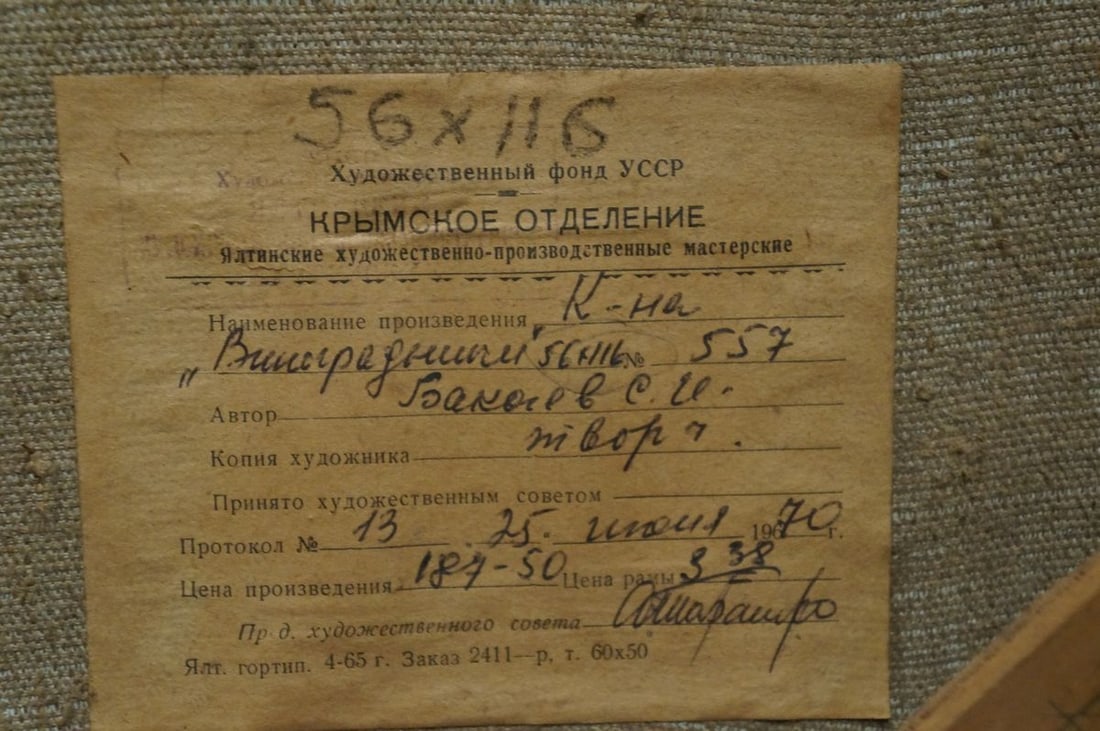 56х116
Художественный фонд УССР
КРЫМСКОЕ ОТДЕЛЕНИЕ
Ялтинские художественно-производственные мастерские
Наименование произведения К-на
„Виноградники" 56х116 № 557
Автор Бакаев С. И.
Копия художника творч.
Принято художественным советом
Протокол № 13 25. июня 1970 г.
Цена произведения 187-50 Цена рамы 338
Пр д. художественного совета
Ялт. гортип. 4-65 г. Заказ 2411—р, т. 60х50